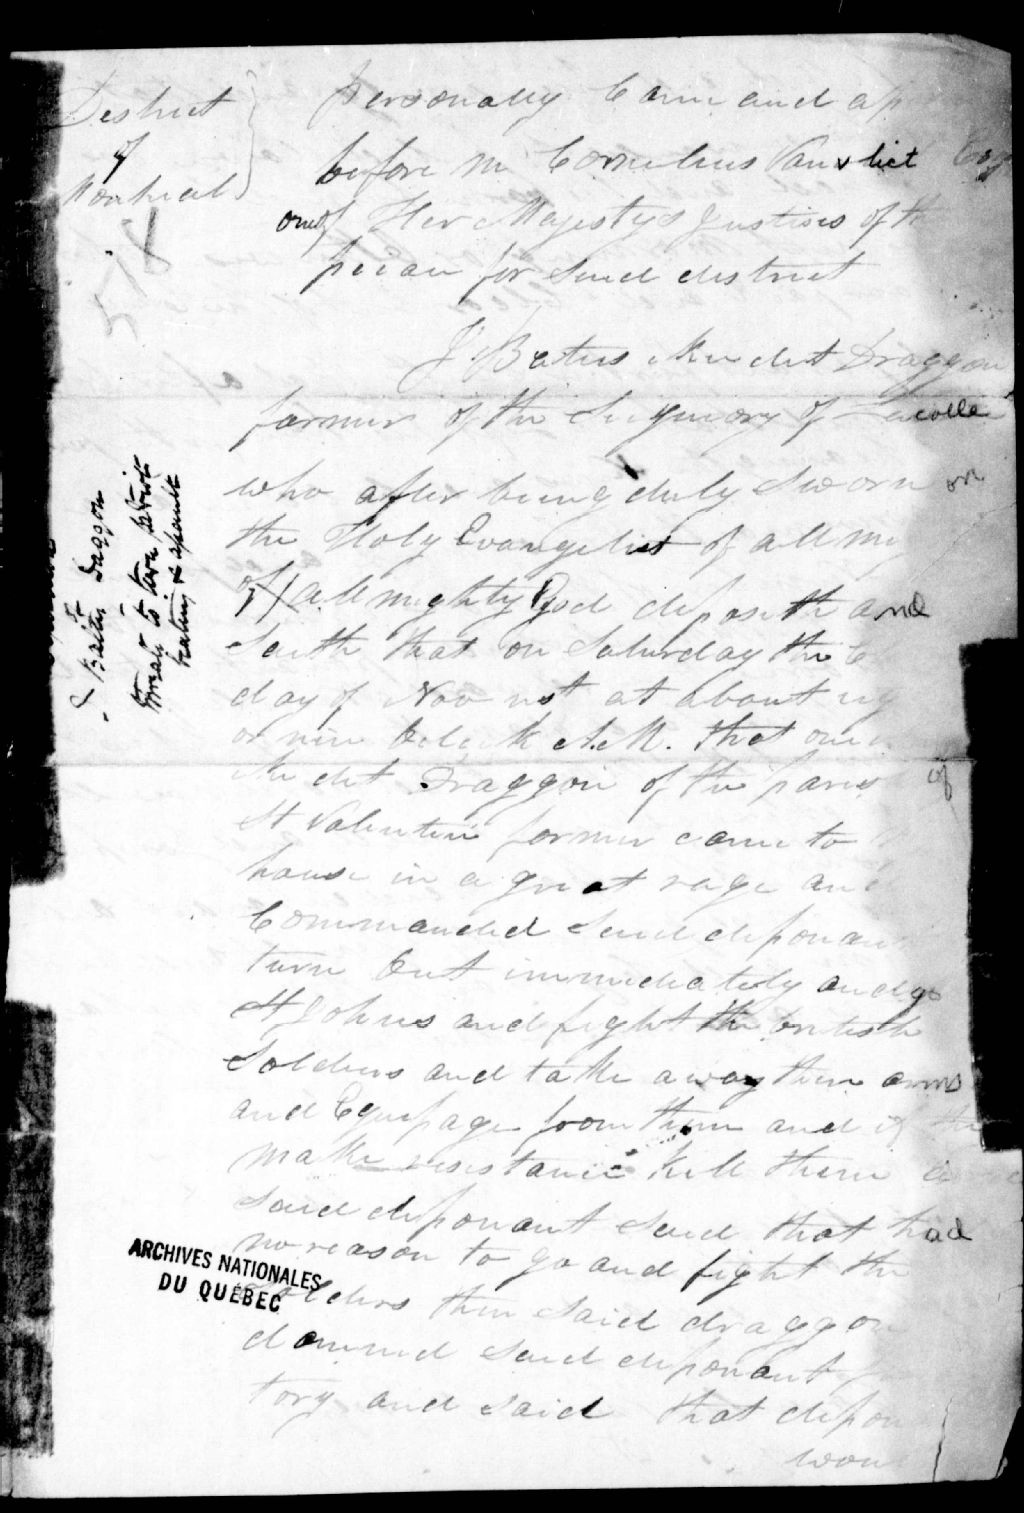 District
of
Montreal
Personally Came and ap
before me Cornelius Vanvliet Esq
one of Her Majestys Justises of th
peace for said district
J Batus Draggon
farmer of the Seigneory of Lacolle
who after being duly Sworn on
the Holy Evangelist of all my
of all mighty God deposeth and
Saith that on Saturday the
day of Nov at about
or nine Oclock A.M. that one
Draggon of the paris of
St Valentin farmer came to
house in a great rage and
Commanded said deponan
turn Out immediately and go
St Johns and fight the british
Soldiers and take away there arms
and Equipage from them and if the
make resistance kill them
Said deponant said that had
no reason to go and fight the
Soldiers then said draggon
damned said deponant for
tory and said that depon
wou
J Batis Daggon
threats to turn patriot
beating & assault
ARCHIVES NATIONALES
DU QUÉBEC